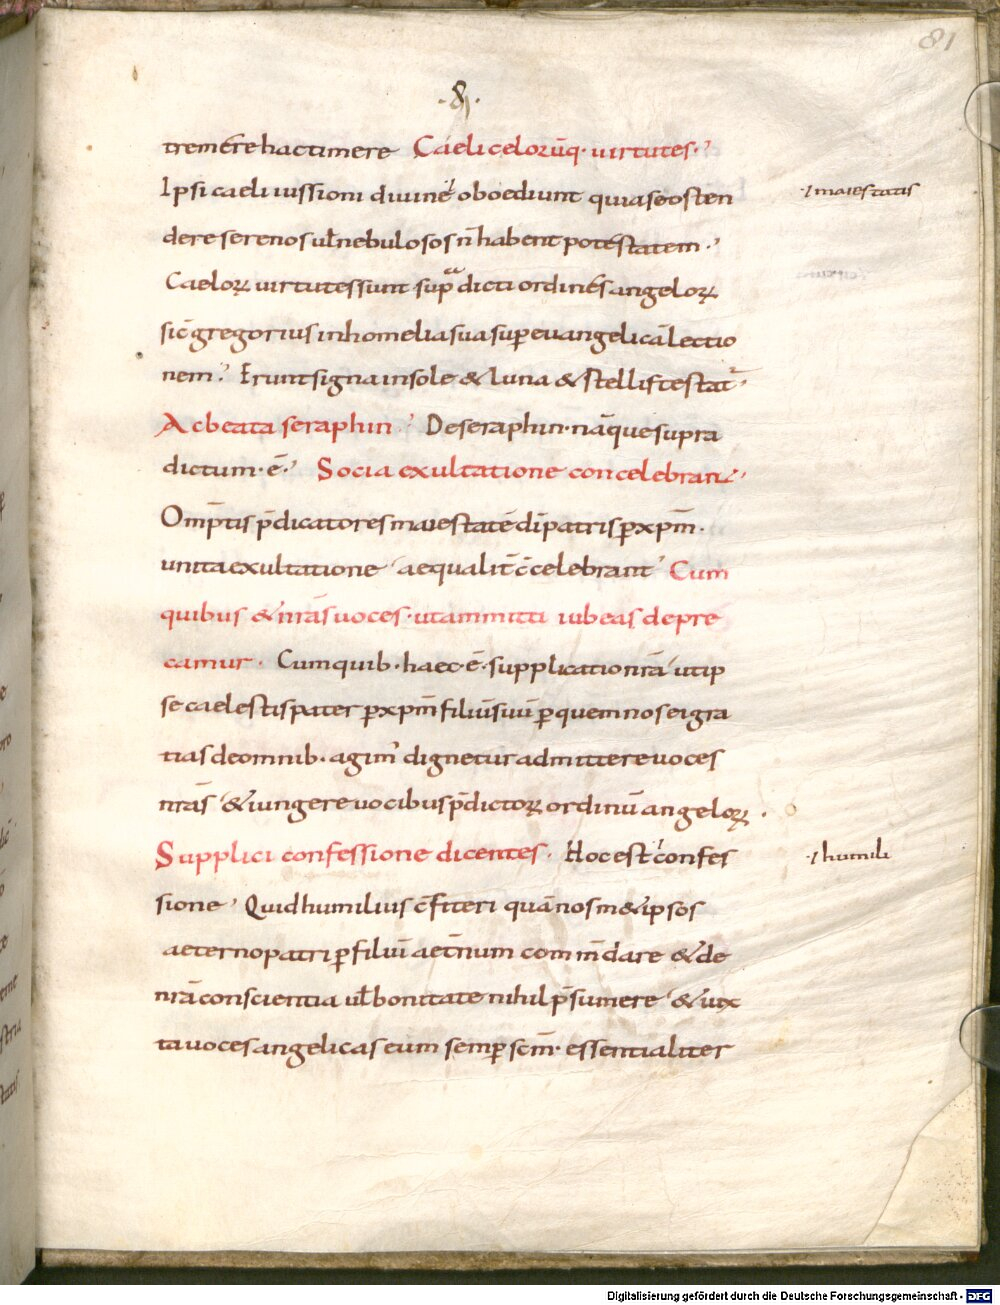 81
·8·
tremere hac timere Caeli celorūq· uirtutes·
Ipsi caeli iussioni diuinę oboediunt quia se osten ·i maiestatis
dere serenos uł nebulosos n̄ habent potestatem·
Caeloꝝ uirtutes sunt sup̄dicti ordines angeloꝝ
sic̄ gregorius in homelia sua sup̲ euangelicā lectio
nem· Erunt signa in sole & luna & stellis testat̄·
Ac beata seraphin· De seraphin· nāque supra
dictum· ē· Socia exultatione concelebrant·
Om̄ptis p̄dicatores maiestatē dī patris ꝑ xp̄m·
unita exultatione aequalit̄ c̄celebrant Cum
quibus & nrās uoces· ut ammitti iubeas depre
camur· Cum quib· haec· ē· supplicatio nrā ut ip
se caelestis pater ꝑ xp̄m filiū suū ꝑ quem nos ei gra
tias de omnib· agim' dignetur admittere uoces
nrās & iungere uocibus p̄dictoꝝ ordinū angeloꝝ·
Supplici confessione dicentes· Hoc est confes ·i humili
sione Quid humilius c̄fiteri quā nosm&ipsos
aeterno patri ꝑ filiū aet̄num comm̄dare & de
nrā conscientia uł bonitate nihil p̄sumere & iux
ta uoces angelicas eum semꝑ scm̄· essentialiter
Digitalisierung gefördert durch die Deutsche Forschungsgemeinschaft - DFG